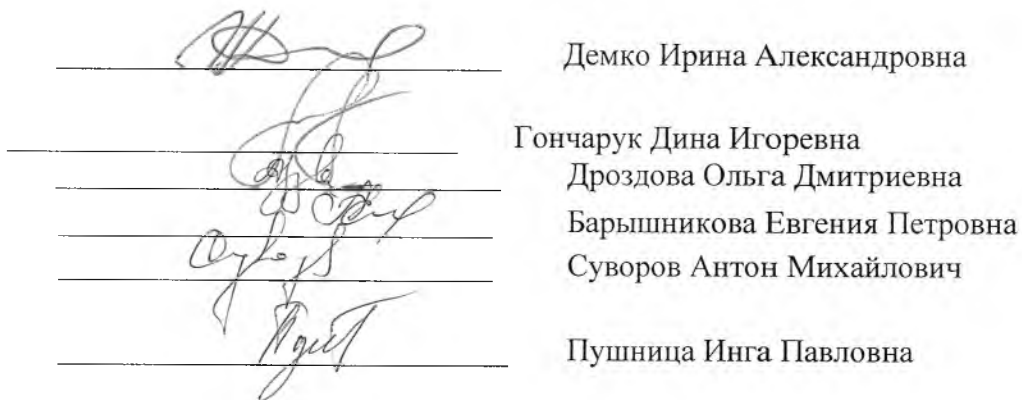 Демко Ирина Александровна
Гончарук Дина Игоревна
Дроздова Ольга Дмитриевна
Барышникова Евгения Петровна
Суворов Антон Михайлович
Пушница Инга Павловна